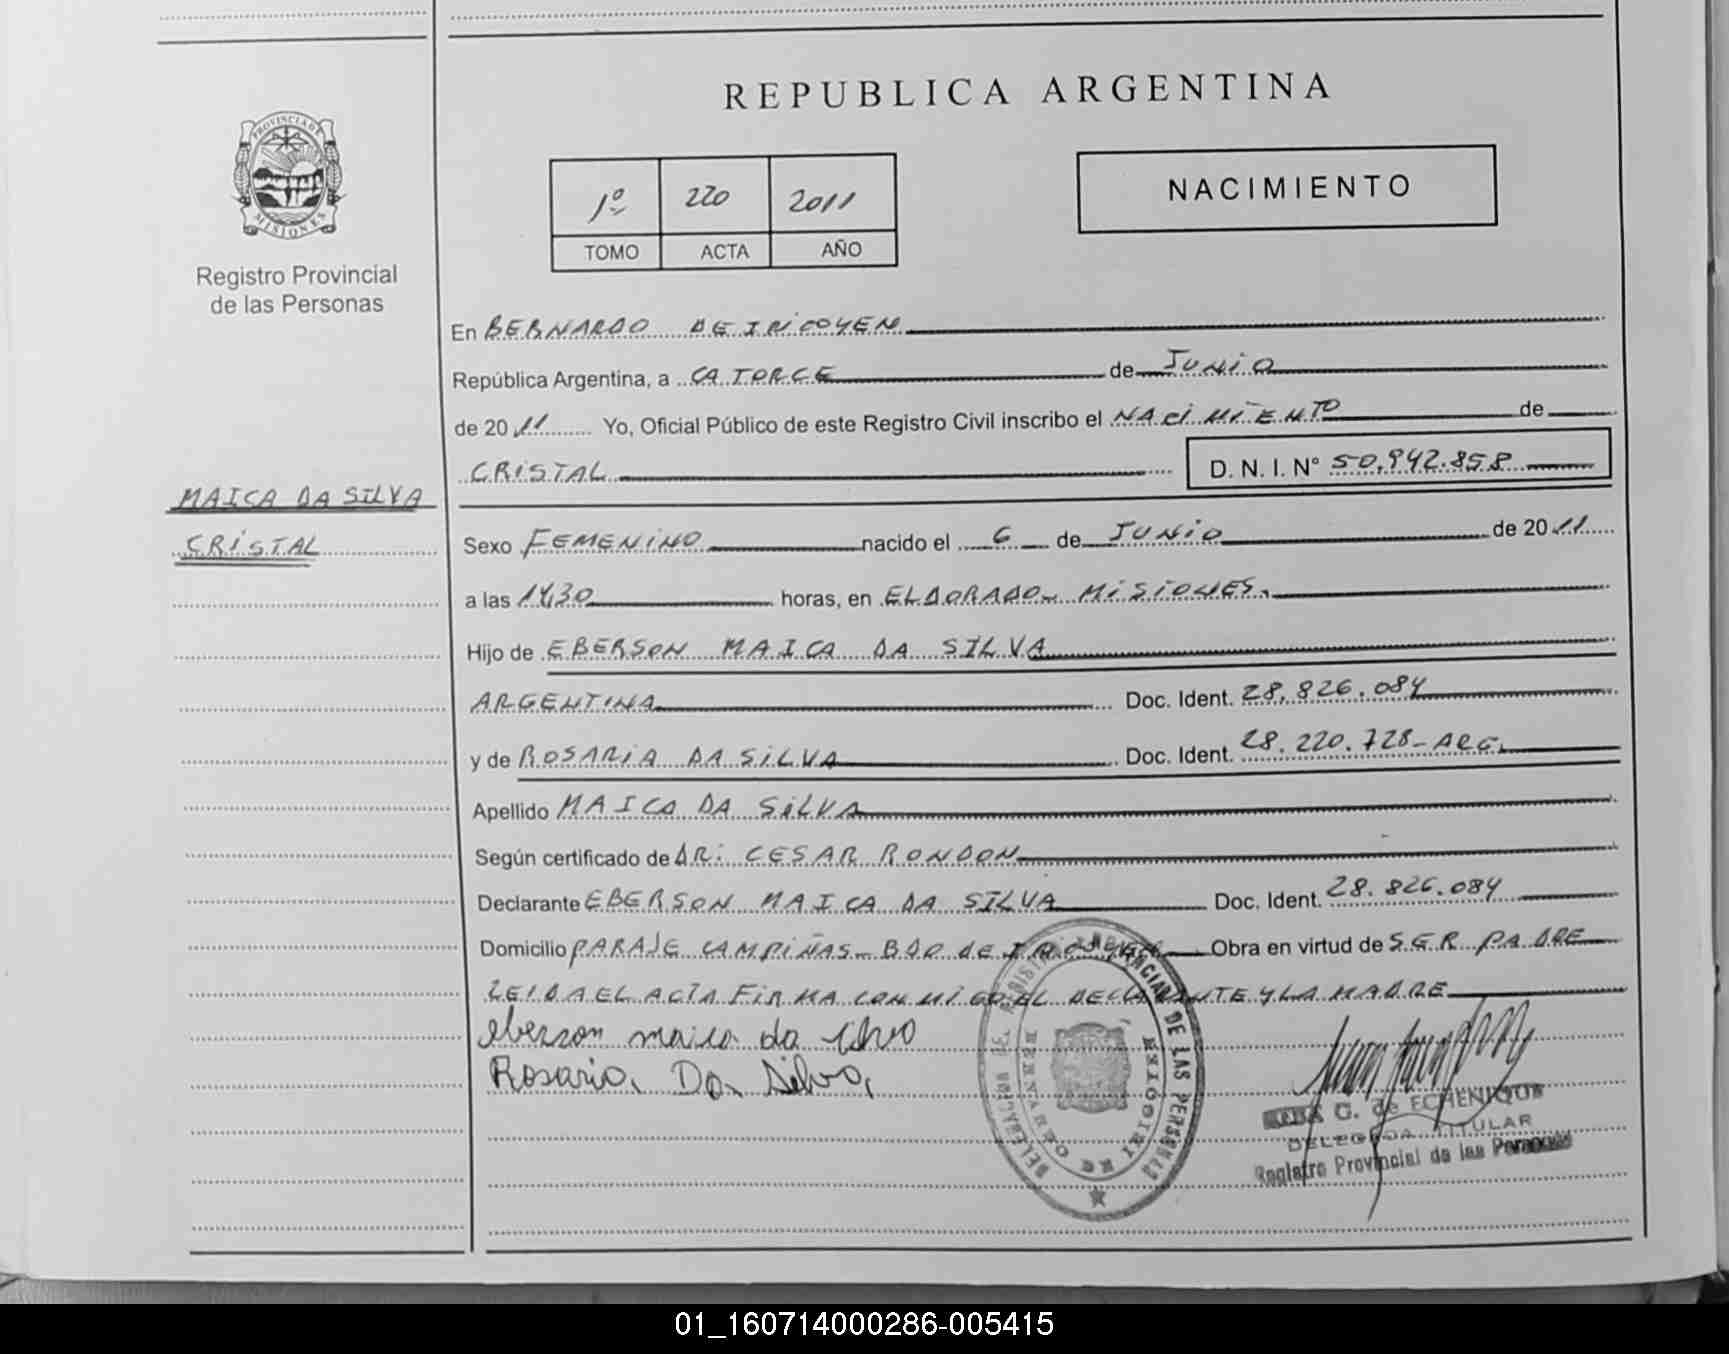 REPUBLICA ARGENTINA
PROVINCIA DE
MISIONES
Registro Provincial
de las Personas
1º 220 2011
TOMO ACTA AÑO
NACIMIENTO
En BERNARDO DE IRIGOYEN
República Argentina, a CATORCE de JUNIO
de 2011 Yo, Oficial Público de este Registro Civil inscribo el NACIMIENTO de
CRISTAL D. N. I. N° 50.942.858
MAICA DA SILVA
CRISTAL
Sexo FEMENINO nacido el 6 de JUNIO de 2011
a las 14,30 horas, en ELDORADO- MISIONES.
Hijo de EBERSON MAICA DA SILVA
ARGENTINA Doc. Ident. 28.826.084
y de ROSARIA DA SILVA Doc. Ident. 28.220.728-ARG.
Apellido MAICA DA SILVA
Según certificado de DR: CESAR RONDON
Declarante EBERSON MAICA DA SILVA Doc. Ident. 28.826.084
Domicilio PARAJE CAMPIÑAS- BDO DE IRIGOYEN Obra en virtud de SER PADRE
LEIDA EL ACTA FIRMA CONMIGO EL DECLARANTE Y LA MADRE
eberson maica da silva
Rosaria Da Silva
G. de ECHENIQUE
DELEGADA TITULAR
Registro Provincial de las Personas
01_160714000286-005415